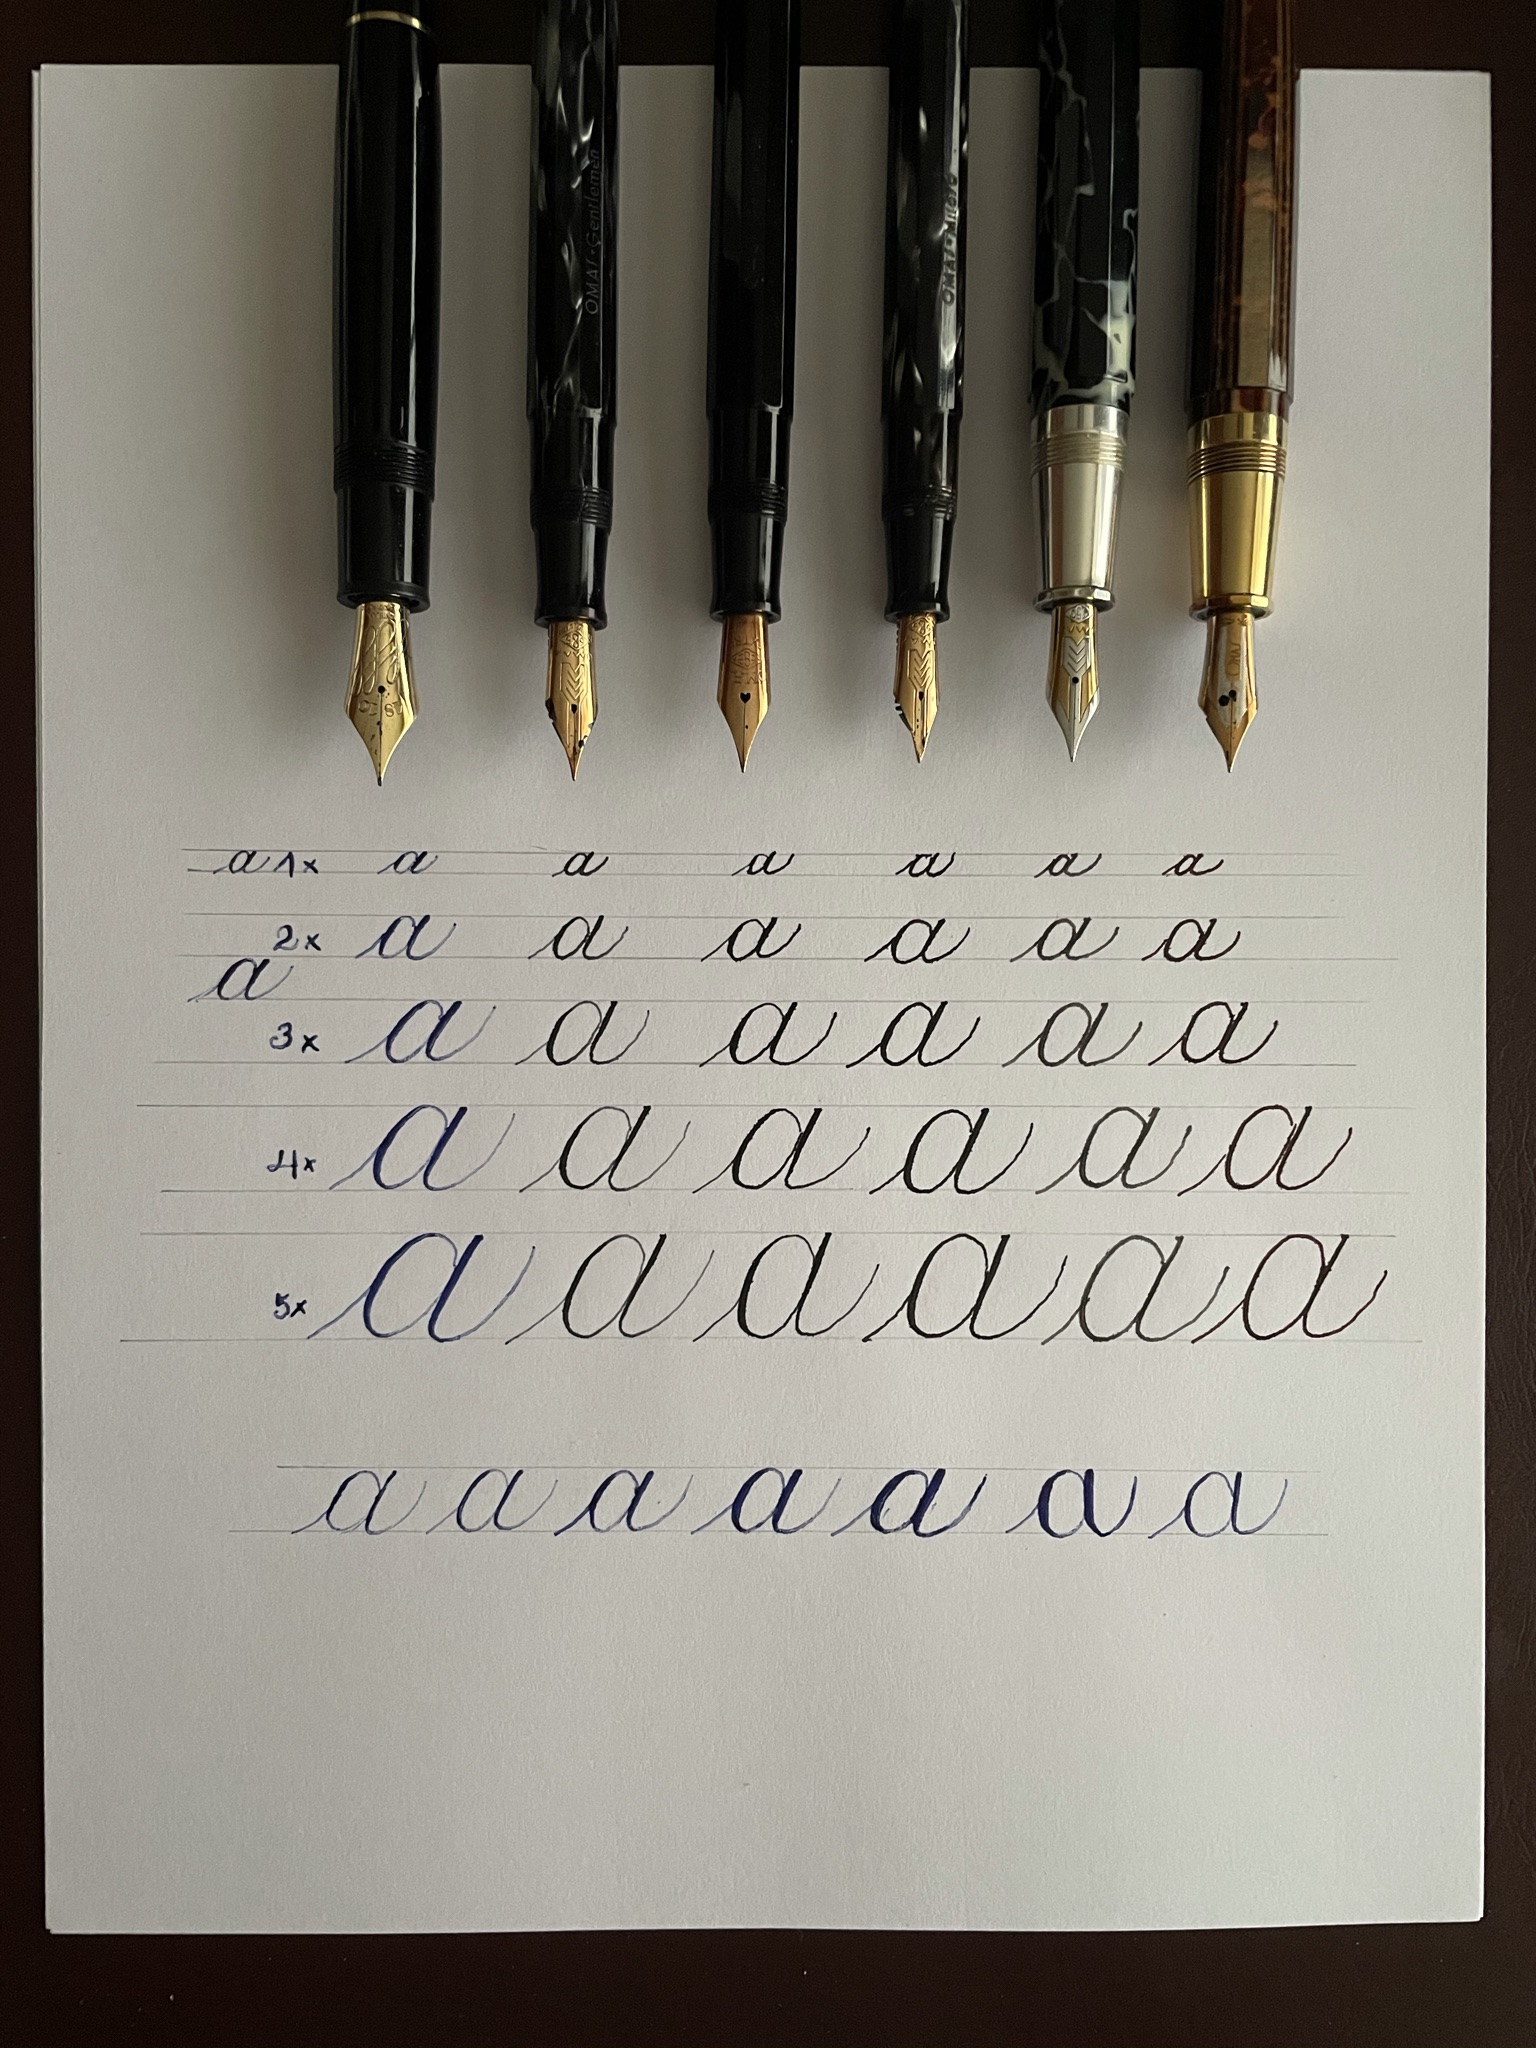 OMAS · Gentlemen
a 1x a a a a a a
2x a a a a a a
a
3x a a a a a a
4x a a a a a a
5x a a a a a a
a a a a a a a